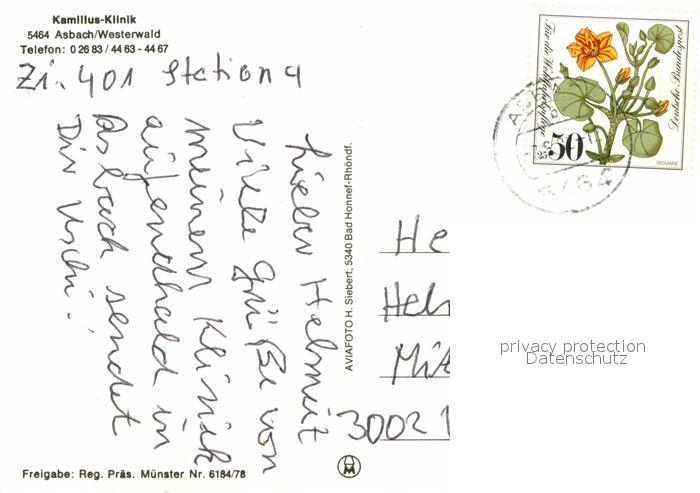 Kamillus-Klinik
5464 Asbach/Westerwald
Telefon: 0 26 83 / 44 63 - 44 67
Zi. 401 Station 4
Lieber Helmut
Viele Grüße von
meinem Klinik
aufenthald in
Asbach sendet
Dir Uschi!
AVIAFOTO H. Siebert, 5340 Bad Honnef-Rhöndf.
Freigabe: Reg. Präs. Münster Nr. 6184/78
Für die Wohlfahrtspflege
Deutsche Bundespost
50
+25
SEEKANNE
He
Hel
Mit
3002 1
privacy protection
Datenschutz